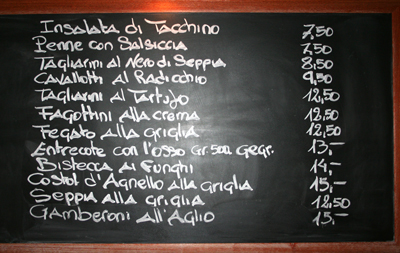 Insalata di Tacchino 7,50
Penne con Salsiccia 7,50
Tagliarini al Nero di Seppia 8,50
Cavallotti al Radicchio 9,50
Tagliarini al Tartufo 12,50
Fagottini alla crema 12,50
Fegato alla griglia 12,50
Entrecote con l'osso Gr. 500 Gegr. 13,-
Bistecca ai Funghi 14,-
Costol d'Agnello alla griglia 15,-
Seppia alla griglia 12,50
Gamberoni all'Aglio 15,-